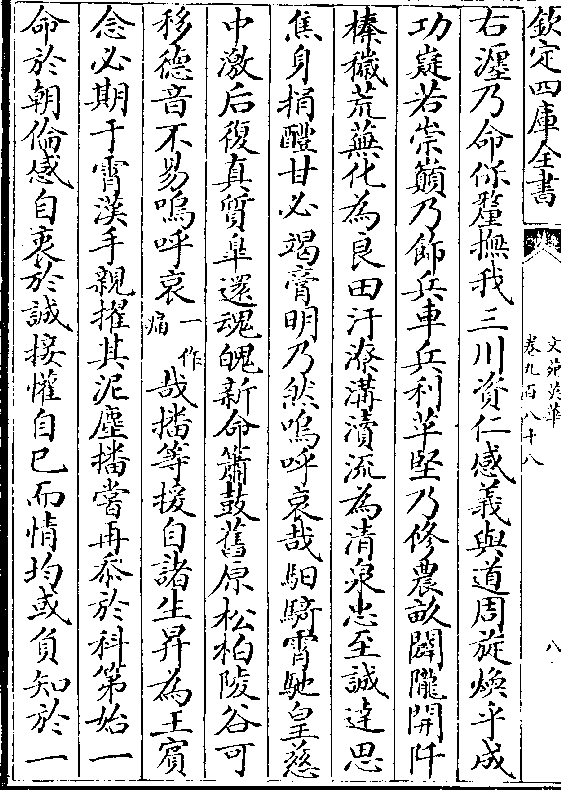 欽定四庫全書
文苑英華
卷九百八十八
八
右灋乃命保釐撫我三川資仁感義與道周旋煥乎成
功嶷若崇巔乃飾兵車兵利革堅乃修農畝闢隴開阡
榛穢荒蕪化為良田汙潦溝瀆流為清泉忠至誠逹思
焦身捐醴甘必竭膏明乃然嗚呼哀哉馹騎霄馳皇慈
中激后復真質臯還魂魄新命簫鼓舊原松柏陵谷可
移德音不易嗚呼哀一作痛哉播等援自諸生昇為王賓
念必期于霄漢手親擢其泥塵播嘗再忝於科第始一
命於朝倫感自衷於誠接懽自已而情均或負知於一